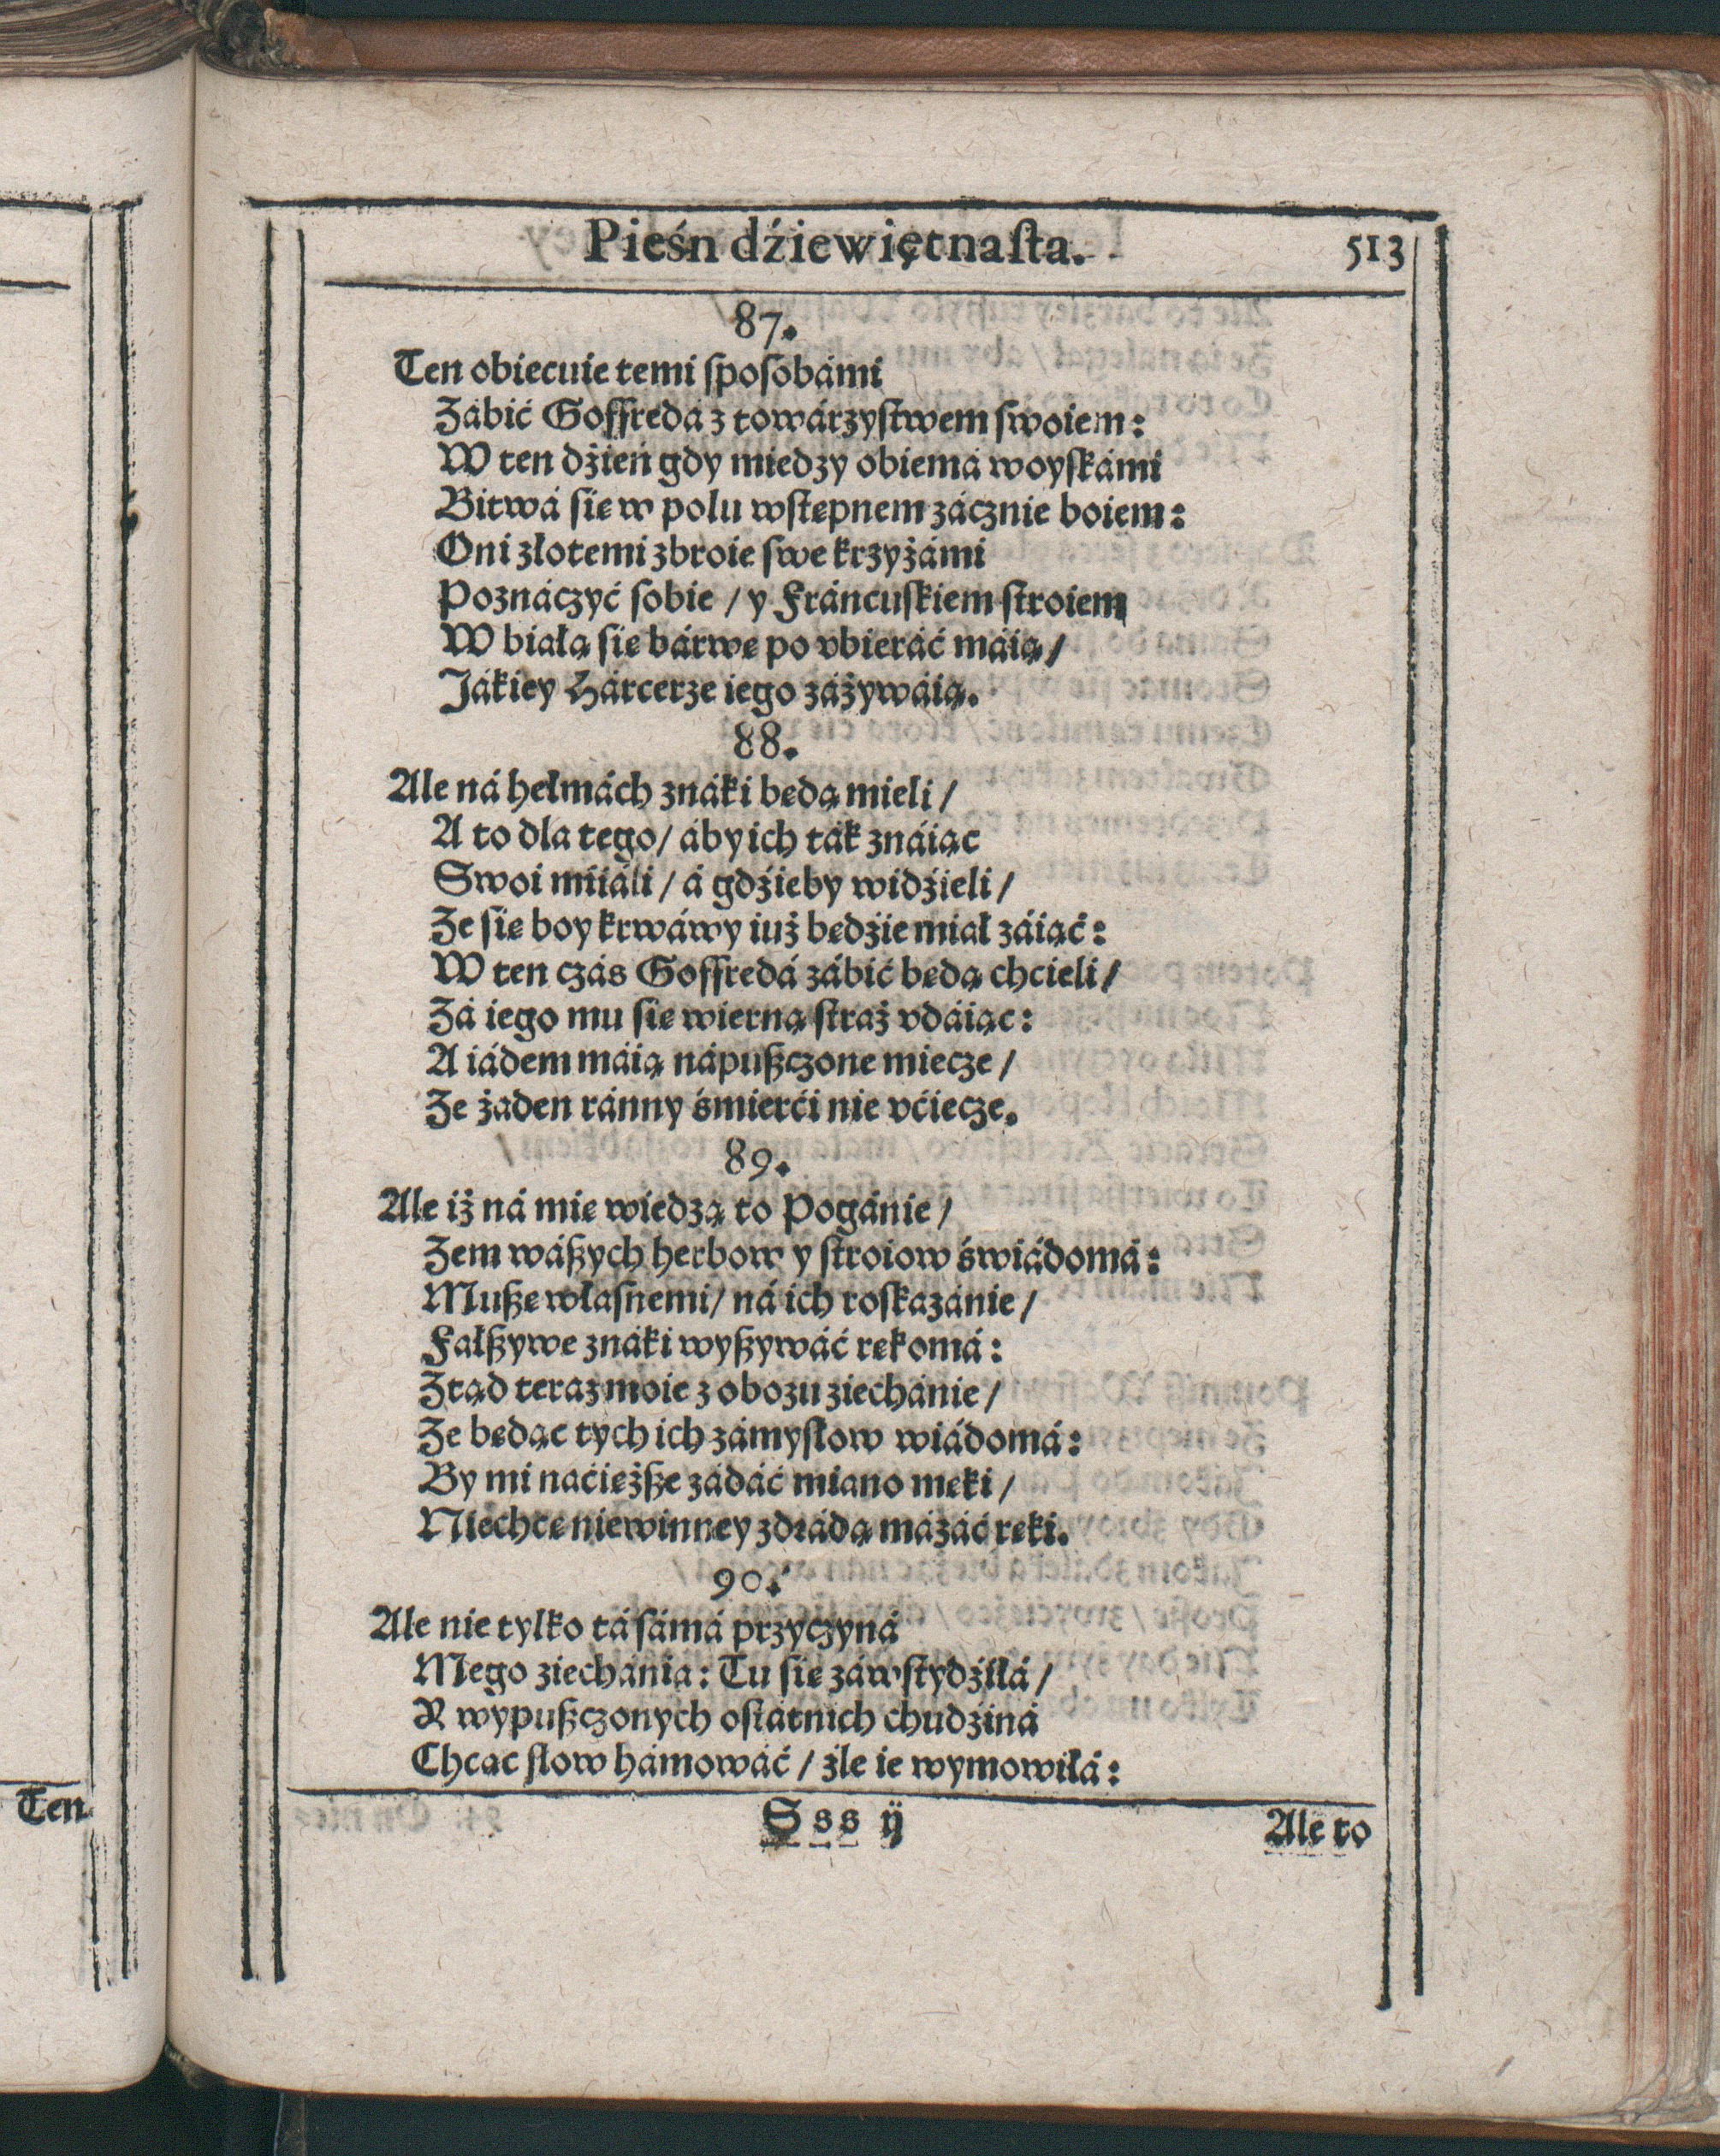 Pieśn dźiewiętnaſta. 513
87.
Ten obiecuie temi ſpoſobámi
Zábić Goffredá z towárzyſtwem ſwoiem:
W ten dźień gdy miedzy obiemá woyſkámi
Bitwá ſię w polu wſtępnem zácznie boiem:
Oni złotemi zbroie ſwe krzyżámi
Poznáczyć ſobie / y Fráncuſkiem ſtroiem
W białą ſię bárwę po vbieráć máią /
Jákiey Hárcerze iego záżywáią.
88.
Ale ná hełmách znáki będą mieli /
A to dla tego / áby ich ták znáiąc
Swoi miiáli / á gdźieby widźieli /
Że ſię boy krwáwy iuż będźie miał záiąć:
W ten czás Goffredá zábić będą chcieli /
Zá iego mu ſię wierną ſtraż vdáiąc:
A iádem máią nápuſzczone miecze /
Że żaden ránny śmierći nie vćiecze.
89.
Ale iż ná mię wiedzą to Pogánie /
Żem wáſzych herbow y ſtroiow świádomá:
Muſzę własnemi / ná ich roſkazánie /
Fałſzywe znáki wyſzywáć rękomá:
Ztąd teraz moie z obozu ziechánie /
Że będąc tych ich zámyſłow wiádomá:
By mi naćięższe zádáć miano męki /
Niechcę niewinney zdrádą mázáć ręki.
90.
Ale nie tylko tá ſámá przyczyná
Mego ziechánia: Tu ſię záwſtydźiłá /
R wypuſzczonych oſtátnich chudźiná
Chcąc ſłow hámowáć / źle ie wymowiłá:
Ten
Sss ij
Ale to